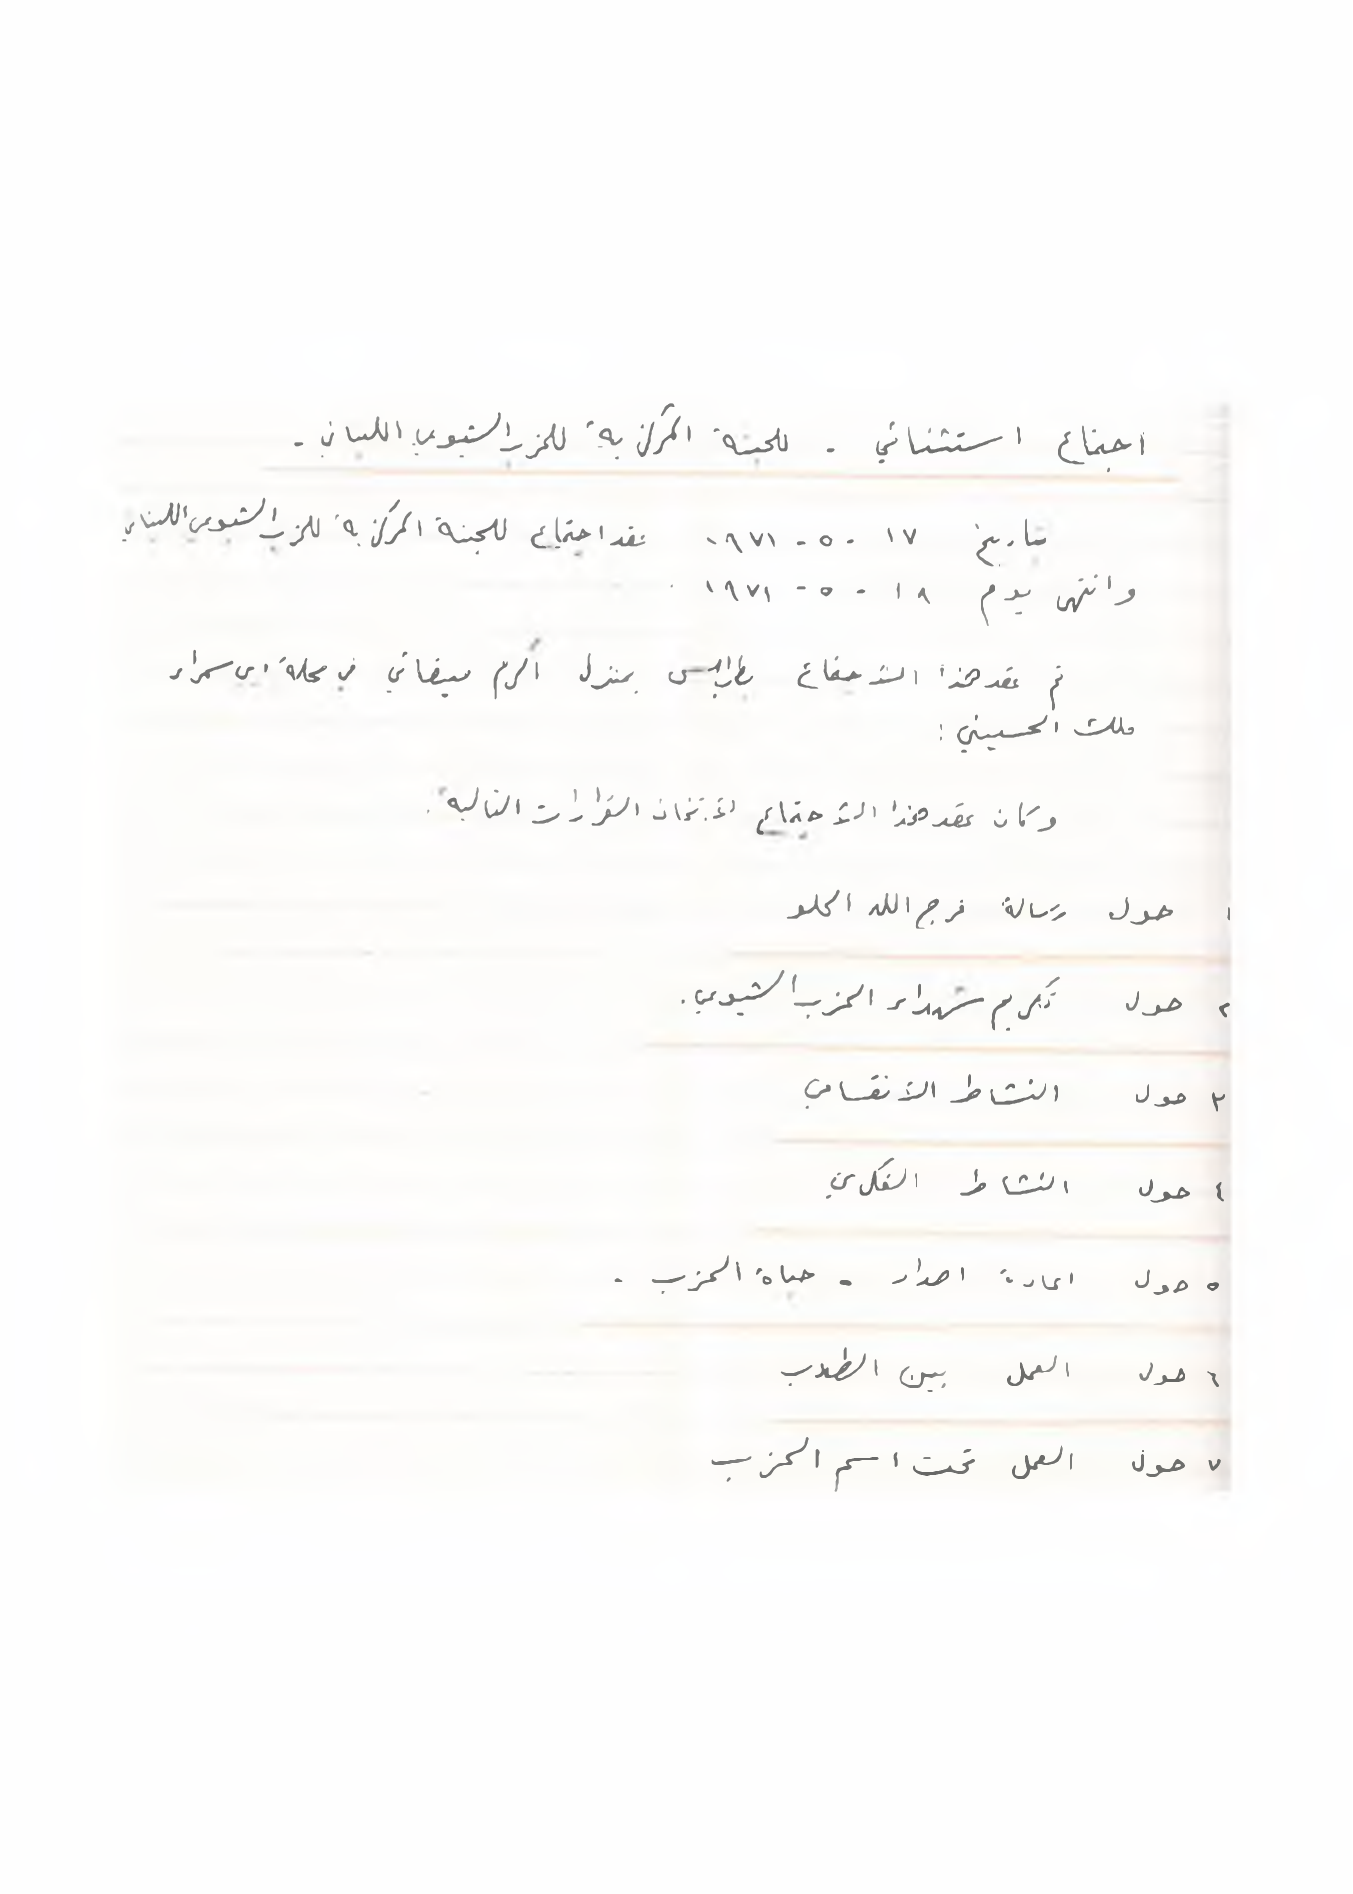 اجتماع استثنائي - للجنة المركزية للحزب الشيوعي اللبناني -
بتاريخ ١٧ - ٥ - ١٩٧١ عقد اجتماع للجنة المركزية للحزب الشيوعي اللبناني
وانتهى يوم ١٨ - ٥ - ١٩٧١ .
تم عقد هذا الاجتماع بطرابلس بمنزل أكرم ميقاتي في محلة ابي سمراء
ملك الحسيني :
وكان عقد هذا الاجتماع لاتخاذ القرارات التالية .
١ حول رسالة فرج الله الحلو
٢ حول تكريم شهداء الحزب الشيوعي .
٣ حول النشاط الانقسامي
٤ حول النشاط الفكري
٥ حول اعادة اصدار - حياة الحزب -
٦ حول العمل بين الطلاب
٧ حول العمل تحت اسم الحزب